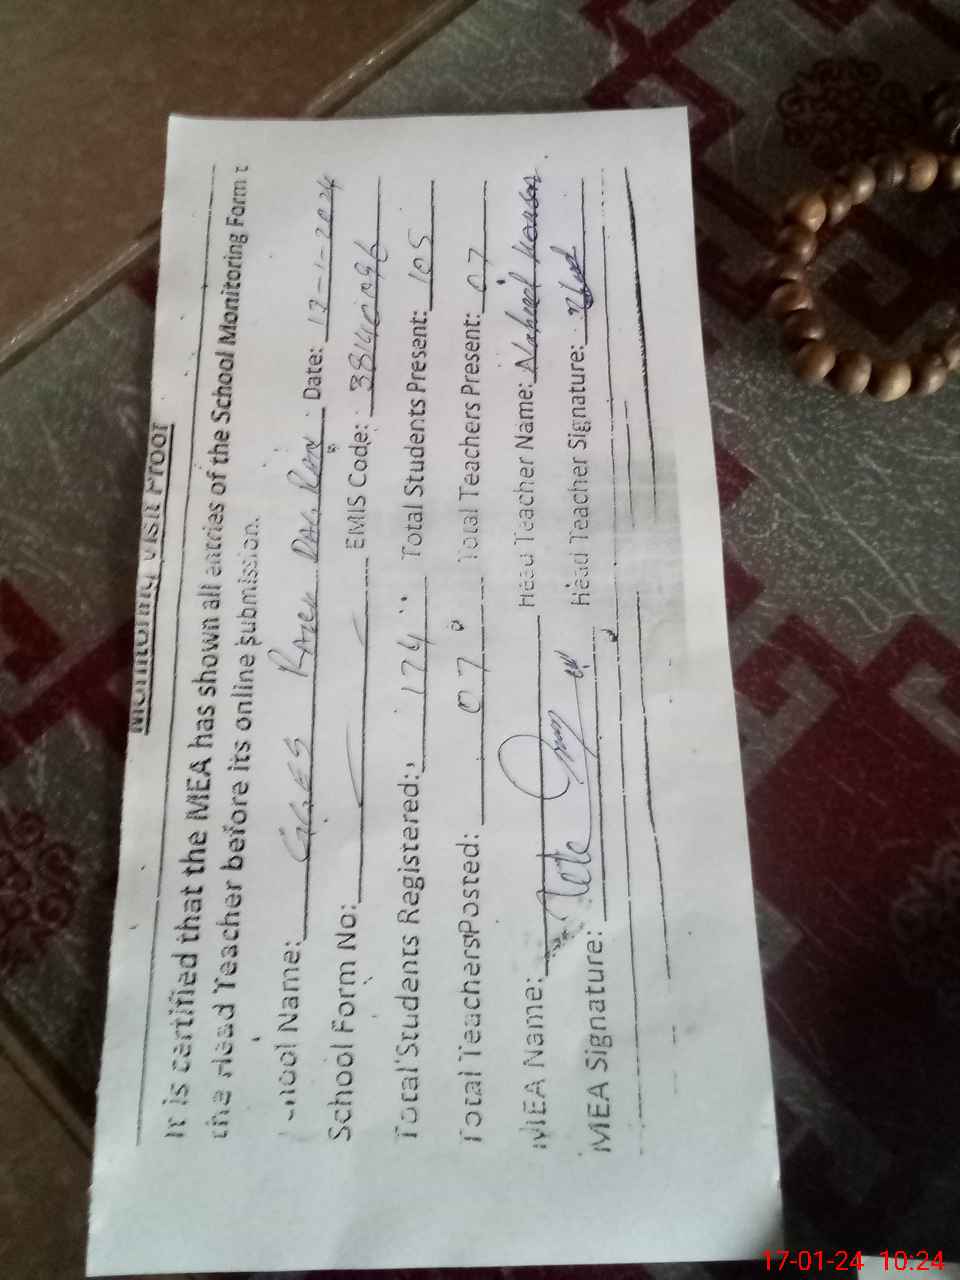 Monitoring Visit Proof
It is certified that the MEA has shown all entries of the School Monitoring Form t
the Head Teacher before its online submission.
School Name: GGES Date: 17-1-2024
School Form No: EMIS Code:
Total Students Registered: 174 Total Students Present: 105
Total Teachers Posted: 07 Total Teachers Present: 07
MEA Name: Head Teacher Name: Naheed Kousar
MEA Signature: Head Teacher Signature:
17-01-24 10:24